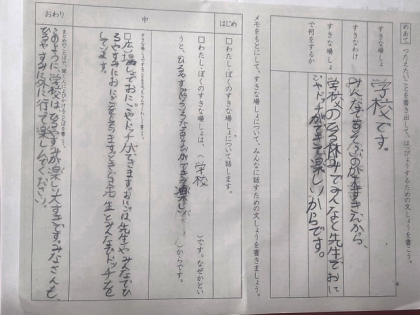 めあて つたえたいことを書き出し、はっぴょうするための文しょうを書こう。
すきな場しょ
学校です。
すきなわけ
みんなであそぶのが大すきだから、
すきな場しょで何をするか
学校のひる休みでみんなと先生でおに
ドッチができて楽しいからです。
メモをもとにして、すきな場しょについて、みんなに話すための文しょうを書きましょう。
はじめ
□わたし・ぼくのすきな場しょについて話します。
中
□わたし・ぼくのすきな場しょは、(学校)です。なぜかとい
うと、
からです。
□広場でおにごやドッチができます。おにごは先生やみんなでひ
るやすみにおにごをします。ときどき先生とみんなでドッチを
します。
おわり
このように学校はひるやすみが楽しい大すきです。みなさんも、
ひるやすみに外に行て楽しんでください。